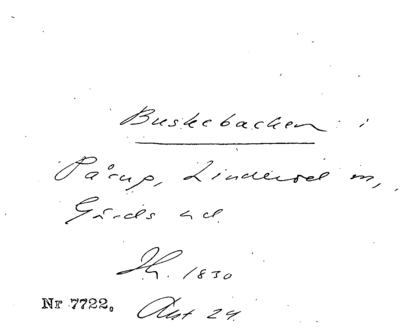 Buskebacken i
Pårup, Linderöd sn,
Gärds hd.
Jh. 1830
Nr 7722. Akt 24